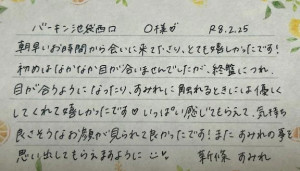 バーキン池袋西口 O様が R8.2.25
朝早いお時間から会いに来て下さり、とても嬉しかったです!
初めはなかなか目が合いませんでしたが、終盤につれ
目が合うようになったり、すみれに触れるときにはより優しく
してくれて嬉しかったです♡ いっぱい感じてもらえて、気持ち
良さそうなお顔が見られて良かったです!また すみれの事を
思い出してもらえますように 新條 すみれ